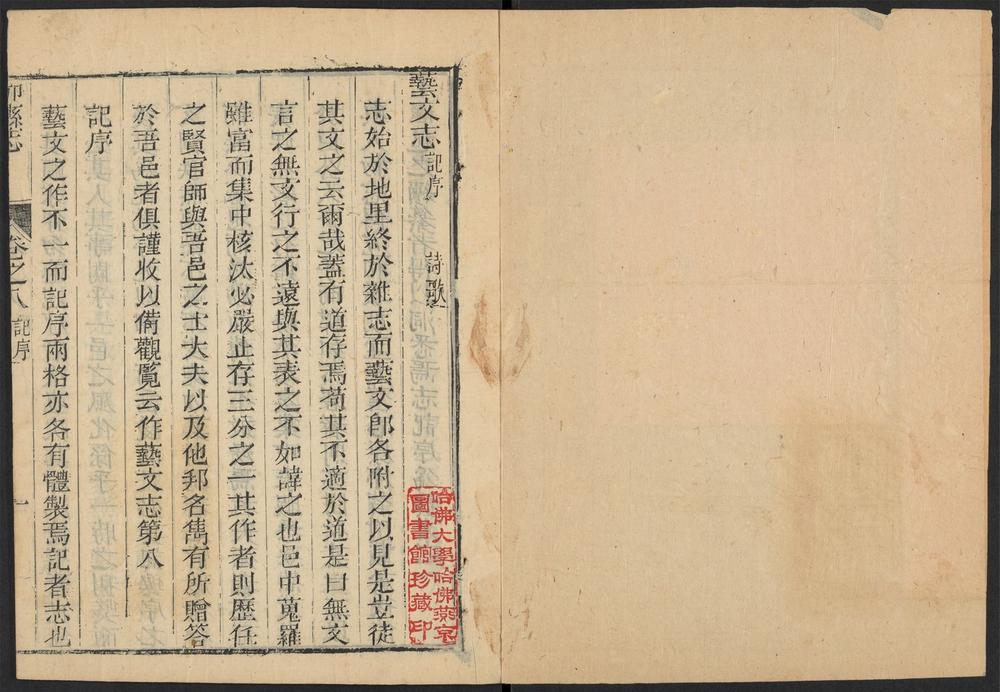 藝文志 記序 詩歌
志始於地里終於雜志而藝文卽各附之以見是豈徒
其文之云爾哉蓋有道存焉苟其不適於道是曰無文
言之無文行之不遠與其表之不如諱之也邑中蒐羅
雖富而集中核汰必嚴止存三分之一其作者則歷任
之賢官師與吾邑之士大夫以及他邦名雋有所贈答
於吾邑者俱謹收以備觀覧云作藝文志第八
記序
藝文之作不一而記序兩格亦各有體製焉記者志也
縣志 卷之八 記序 一
哈佛大學哈佛燕京
圖書館珍藏印